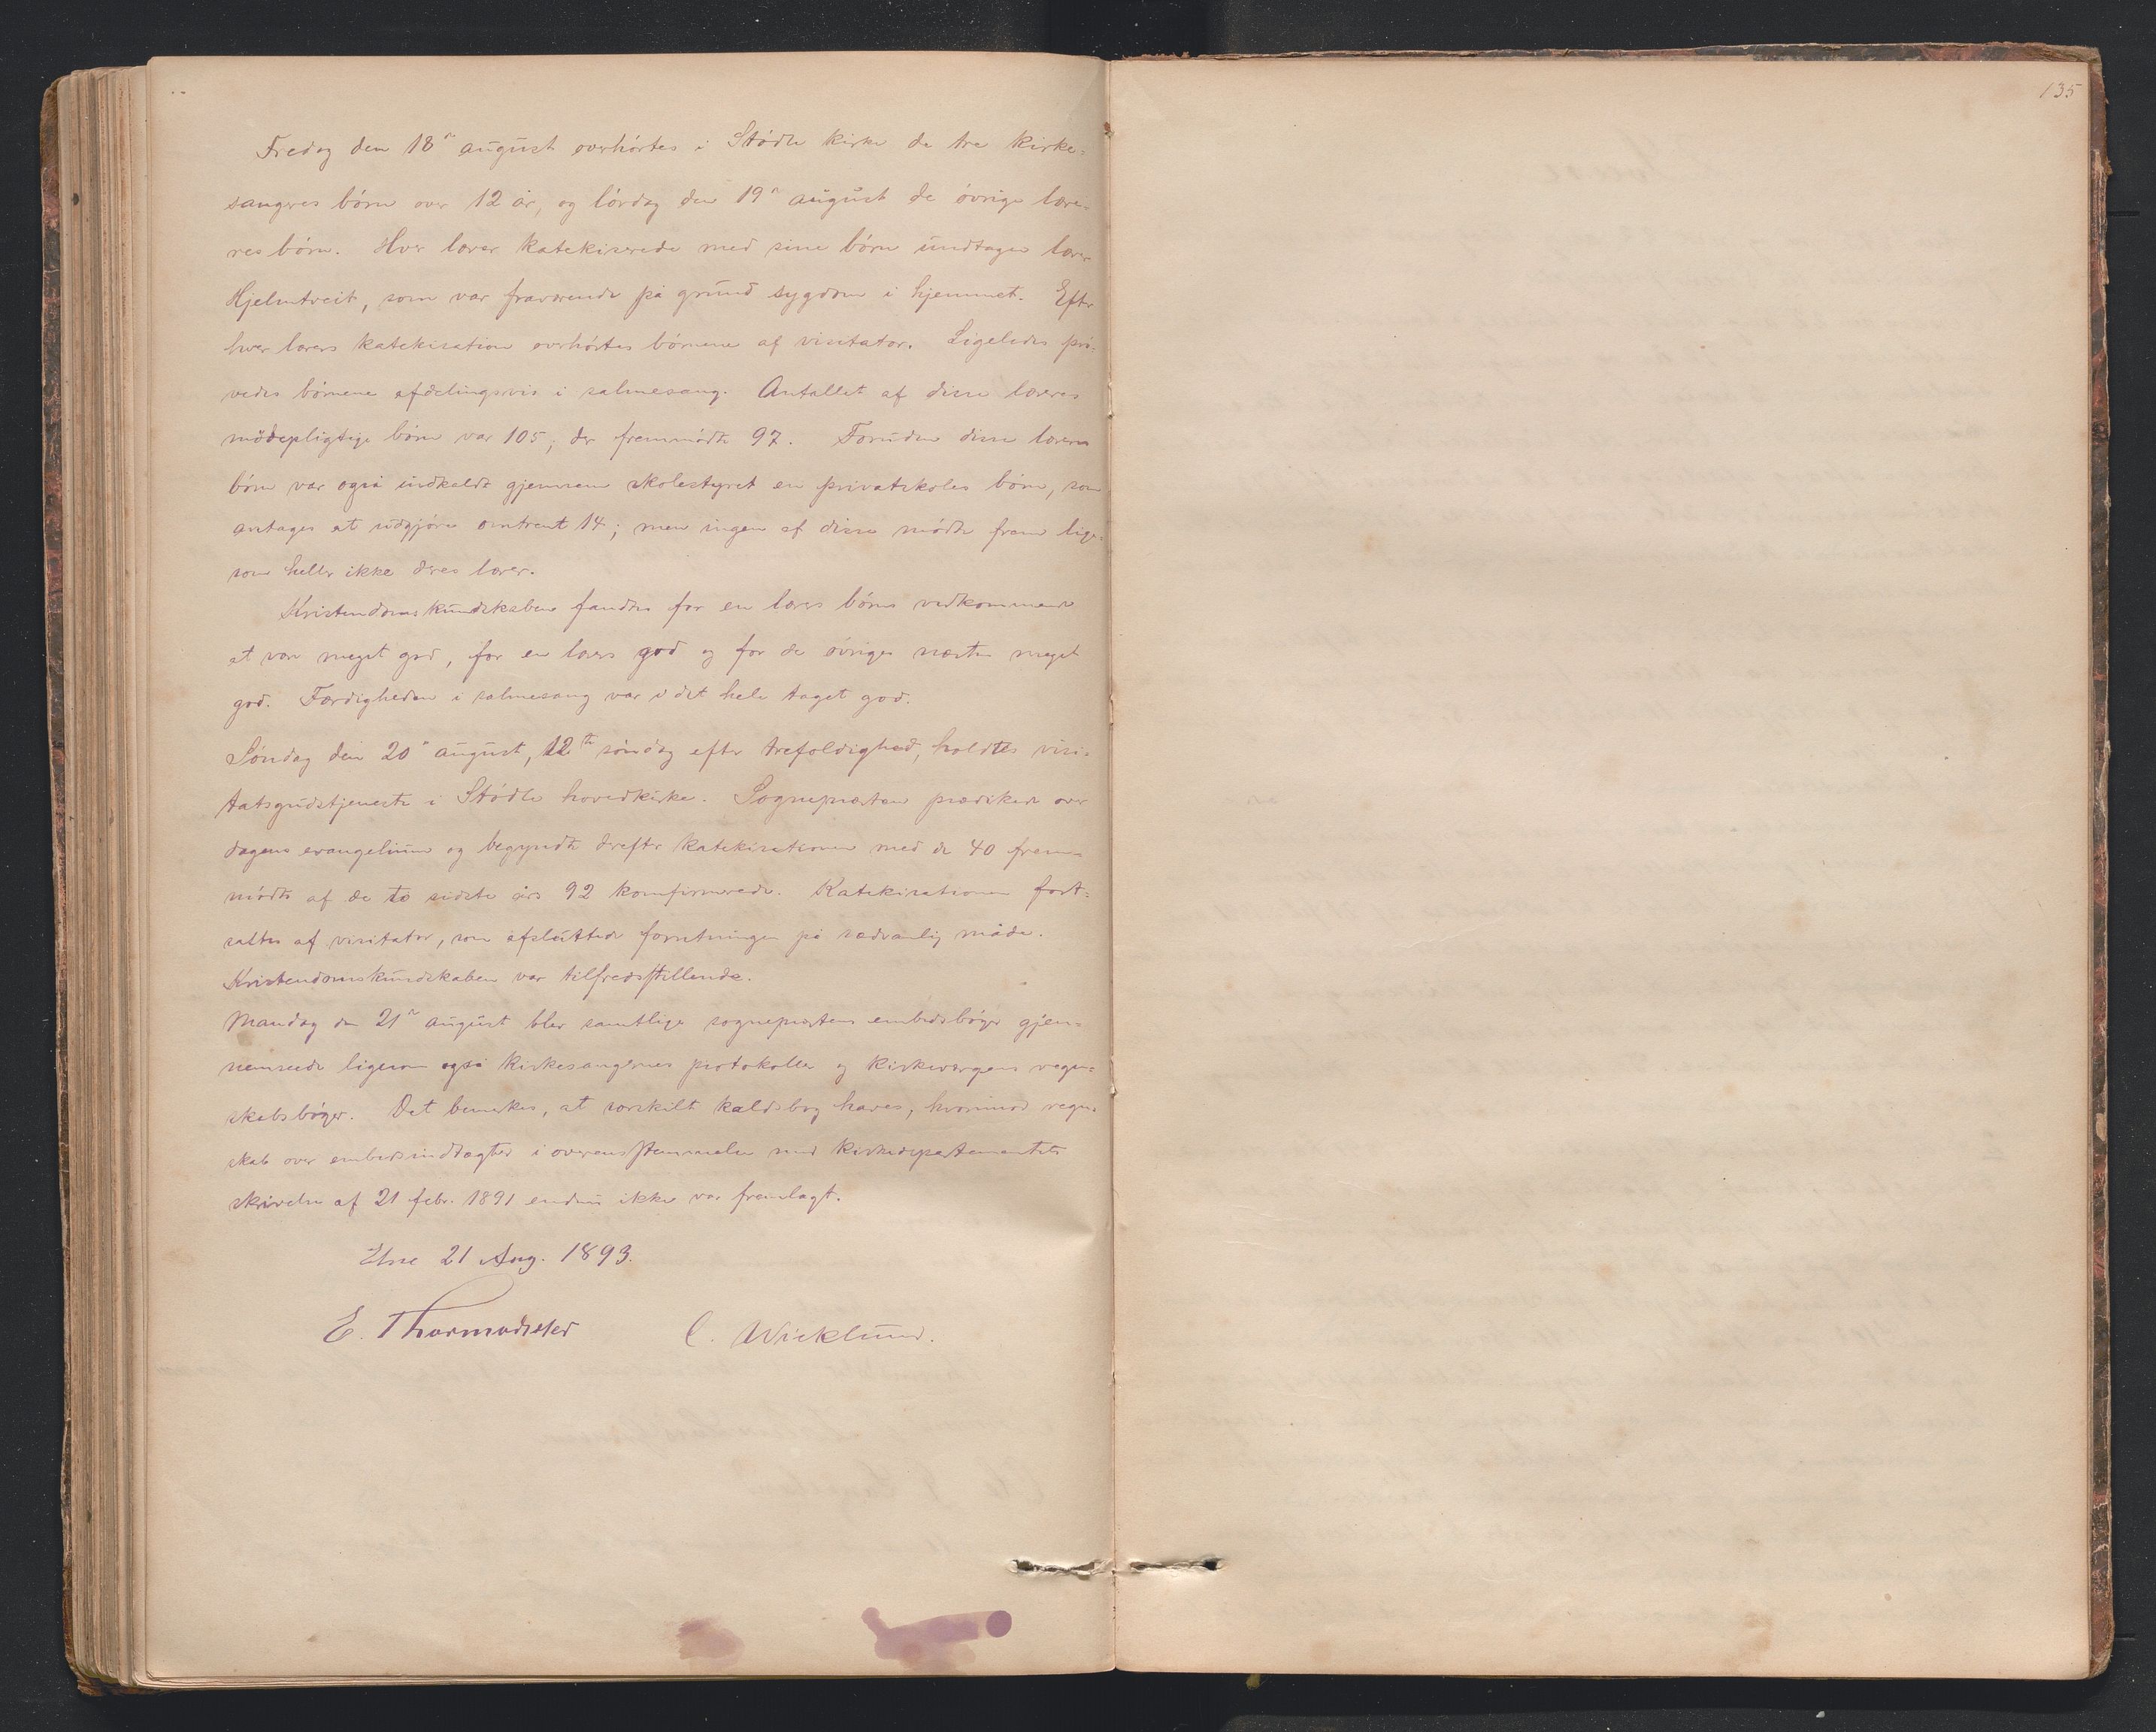 135
Fredag den 18n august overhórtes i Stódle kirke de tre kirke-
sangeres bórn over 12 år, og lórdag den 19n august de óvrige lære-
res bórn. Hver lærer katekiserede med sine bórn undtagen lærer
Hjelmtveit, som var fraværende på grund sygdom i hjemmet. Efter
hver lærers katekisation overhórtes bórnene af visitator. Ligeledes pró-
vedes bórnene afdelingsvis i salmesang. Antallet af disse læreres
módepligtige bórn var 105; der fremmódte 97. Foruden disse læreres
bórn var også indkaldt gjennem skolestyret en privatskoles bórn, som
antages at udgjóre omtrent 14; men ingen af disse módte frem lige-
som heller ikke deres lærer.
Kristendomskundskaben fandtes for en lærers bórns vedkommende
at være meget god, for en lærers god og for de óvriges næsten meget
god. Færdigheden i salmesang var i det hele taget god.
Sóndag den 20n august, 12te sóndag efter trefoldighed, holdtes visi-
tatsgudstjeneste i Stódle hovedkirke. Sognepræsten prædikede over
dagens evangelium og begyndte derefter katekisationen med de 40 frem-
módte af de to sidste års 92 konfirmerede. Katekisationen fort-
sattes af visitator, som afsluttede forretningen på sædvanlig måde.
Kristendomskundskaben var tilfredsstillende.
Mandag den 21n august blev samtlige sognepræstens embedsbóger gjen-
nemseede ligesom også kirkesangernes protokoller og kirkeværgens regn-
skabsbóger. Det bemerkes, at særskilt kaldsbog haves, hvorimod regn-
skab over embedsindtægter i overensstemmelse med kirkedepartementets
skrivelse af 21 febr. 1891 endnu ikke var fremlagt.
Etne 21 Aug. 1893.
E. Thormodsæter C. Wicklund.